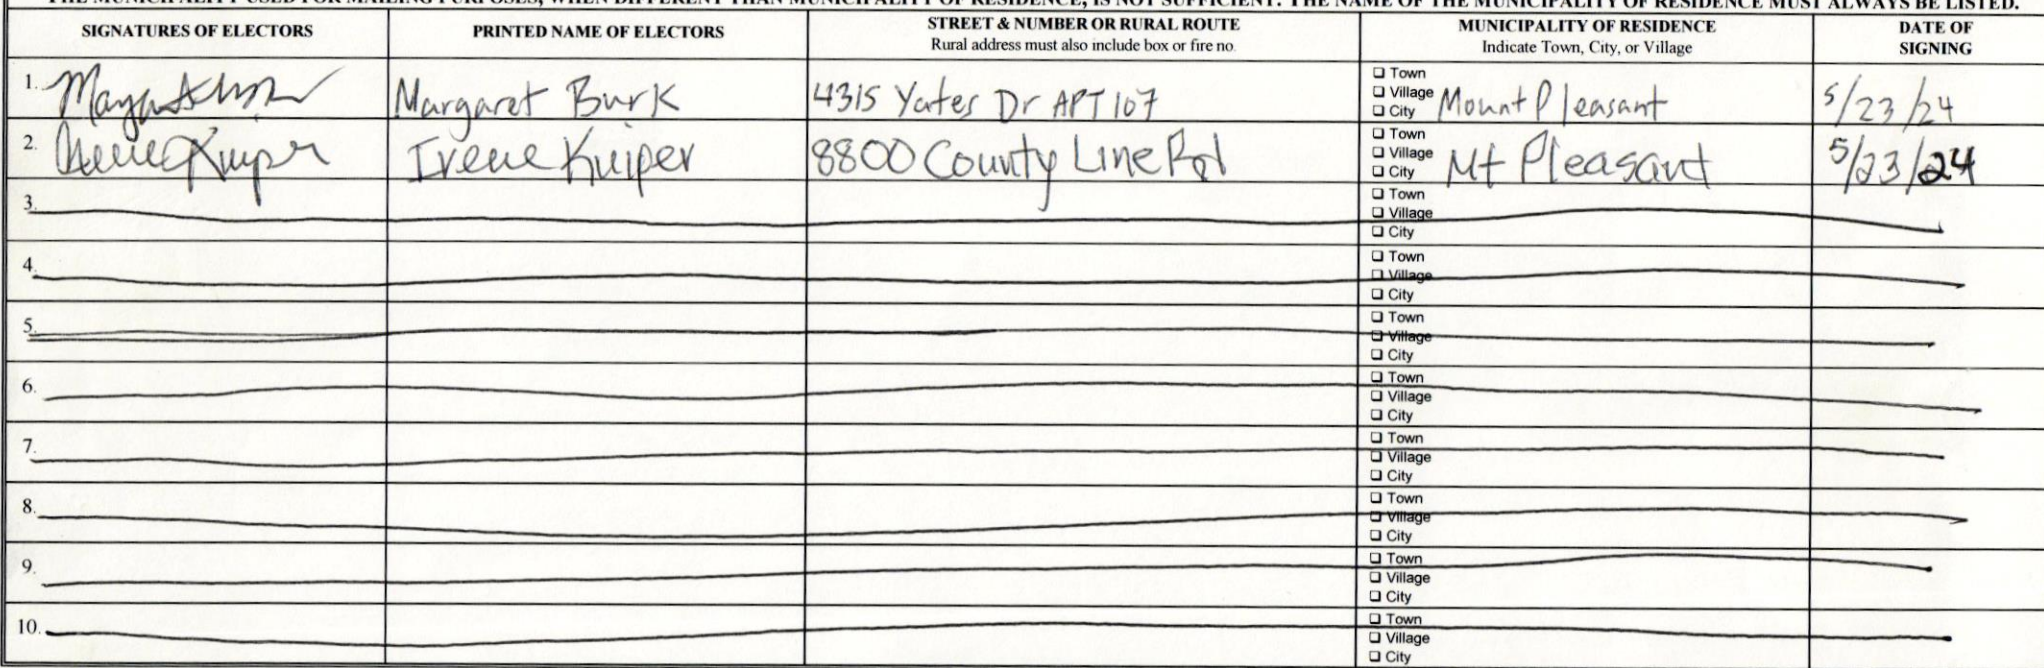 THE MUNICIPALITY USED FOR MAILING PURPOSES, WHEN DIFFERENT THAN MUNICIPALITY OF RESIDENCE, IS NOT SUFFICIENT. THE NAME OF THE MUNICIPALITY OF RESIDENCE MUST ALWAYS BE LISTED.
SIGNATURES OF ELECTORS
PRINTED NAME OF ELECTORS
STREET & NUMBER OR RURAL ROUTE
Rural address must also include box or fire no.
MUNICIPALITY OF RESIDENCE
Indicate Town, City, or Village
DATE OF
SIGNING
1.
Margaret Burk
4315 Yates Dr APT 107
Town
Village
City
Mount Pleasant
5/23/24
2.
Irene Kuiper
Irene Kuiper
8800 County Line Rd
Town
Village
City
Mt Pleasant
5/23/24
3.
Town
Village
City
4.
Town
Village
City
5.
Town
Village
City
6.
Town
Village
City
7.
Town
Village
City
8.
Town
Village
City
9.
Town
Village
City
10.
Town
Village
City